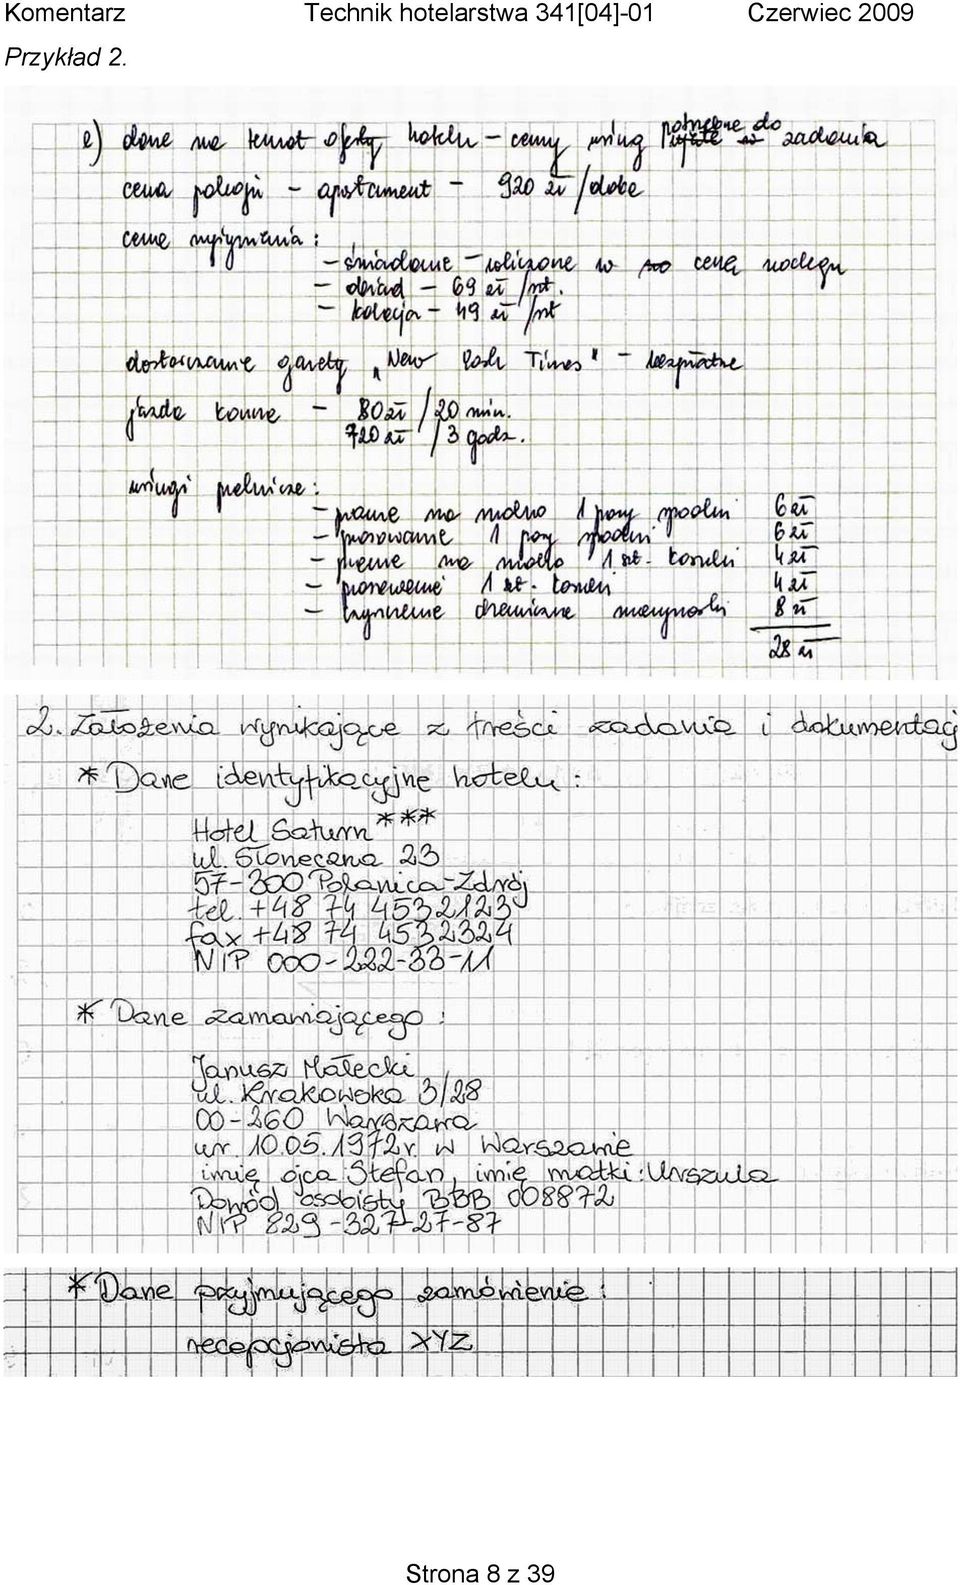 Komentarz Technik hotelarstwa 341[04]-01 Czerwiec 2009
Przykład 2.
e) dane na temat oferty hotelu – ceny usług potrzebne do zadania
cena pokoju – apartament – 920 zł /dobę
cena wyżywienia :
– śniadanie – wliczone w cenę noclegu
– obiad – 69 zł /os.
– kolacja – 49 zł /os
dostarczanie gazety „New York Times" – bezpłatne
jazda konna – 80 zł / 20 min.
720 zł / 3 godz.
usługi pralnicze :
– pranie na mokro 1 pary spodni 6 zł
– prasowanie 1 pary spodni 6 zł
– pranie na mokro 1 szt. koszuli 4 zł
– prasowanie 1 szt. koszuli 4 zł
– czyszczenie chemiczne marynarki 8 zł
28 zł
2. Założenia wynikające z treści zadania i dokumentacj
* Dane identyfikacyjne hotelu :
Hotel Saturn ***
ul. Słoneczna 23
57-300 Polanica-Zdrój
tel. +48 74 4532123
fax +48 74 4532324
NIP 000-222-33-11
* Dane zamawiającego :
Janusz Małecki
ul. Krakowska 3/28
00-260 Warszawa
ur. 10.05.1972 r. w Warszawie
imię ojca Stefan, imię matki: Urszula
Dowód osobisty BBB 008872
NIP 829-327-27-87
* Dane przyjmującego zamówienie :
recepcjonista XYZ
Strona 8 z 39